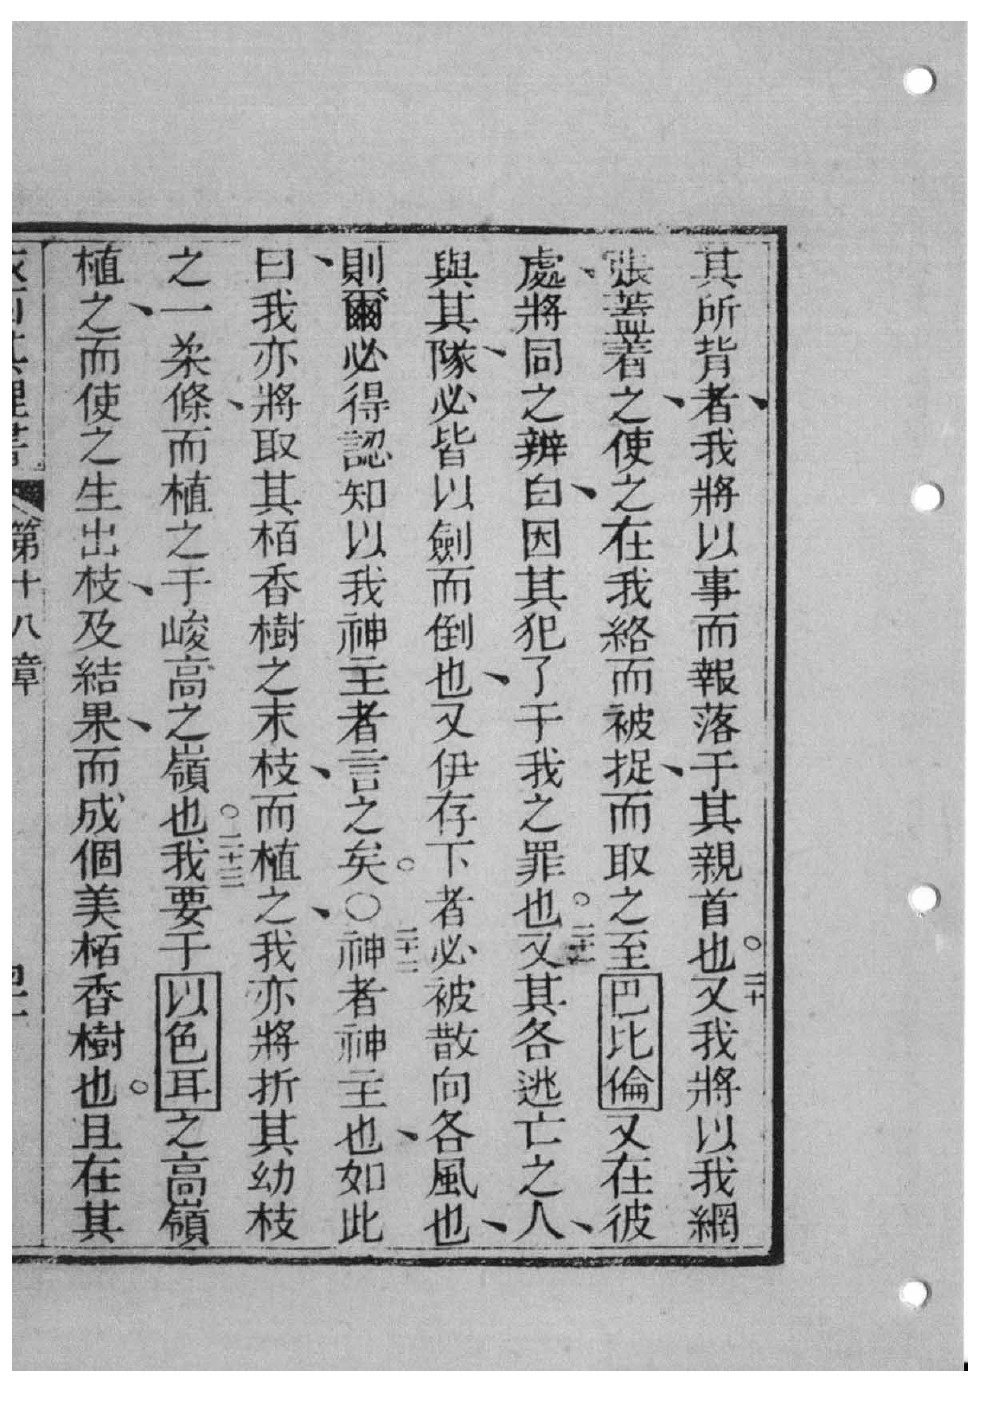 其所背者、我將以事而報落于其親首也。二十又我將以我網
張蓋著之、使之在我絡而被捉、而取之至巴比倫又在彼
處、將同之辨白、因其犯了于我之罪也。二十一又其各逃亡之人、
與其隊、必皆以劍而倒也、又伊存下者必被散向各風也、
則爾必得認知以我神主者言之矣。〇二十二神者神主也、如此
曰、我亦將取其栢香樹之末枝、而植之、我亦將折其幼枝
之一柔條、而植之于峻高之嶺也。二十三我要于以色耳之高嶺
植之、而使之生出枝、及結果、而成個美栢香樹也。且在其
第十八章